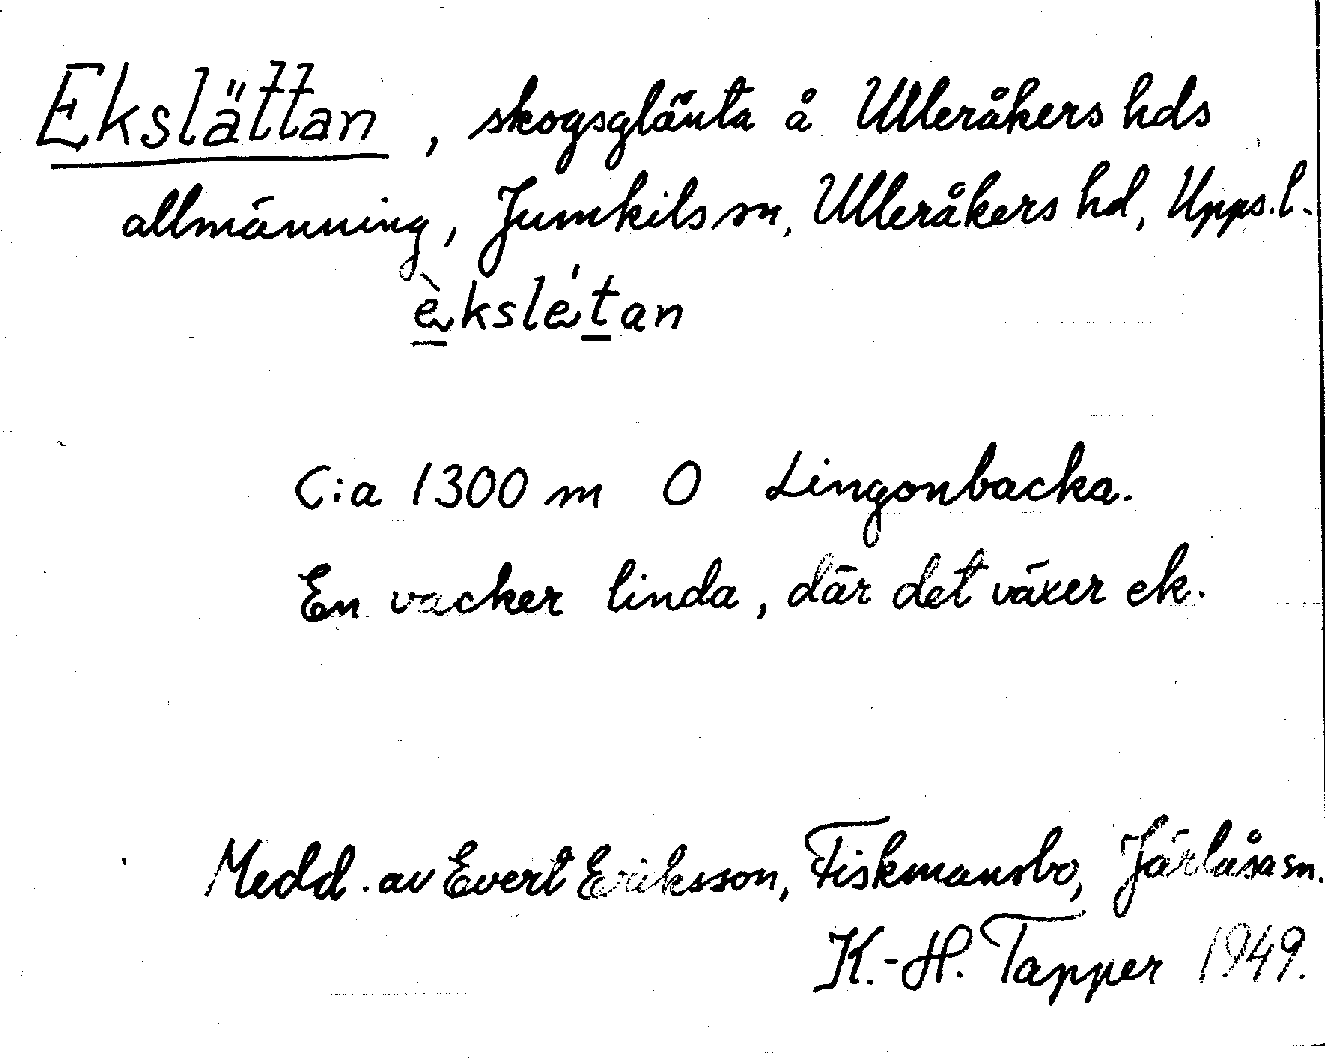 Ekslättan, skogsglänta å Ulleråkers hds
allmänning, Jumkils sn, Ulleråkers hd, Upps.l.
èkslétan
C:a 1300 m O Lingonbacka.
En vacker linda, där det växer ek.
Medd. av Evert Eriksson, Fiskmansbo, Järlåsa sn.
K.-H. Tapper 1949.